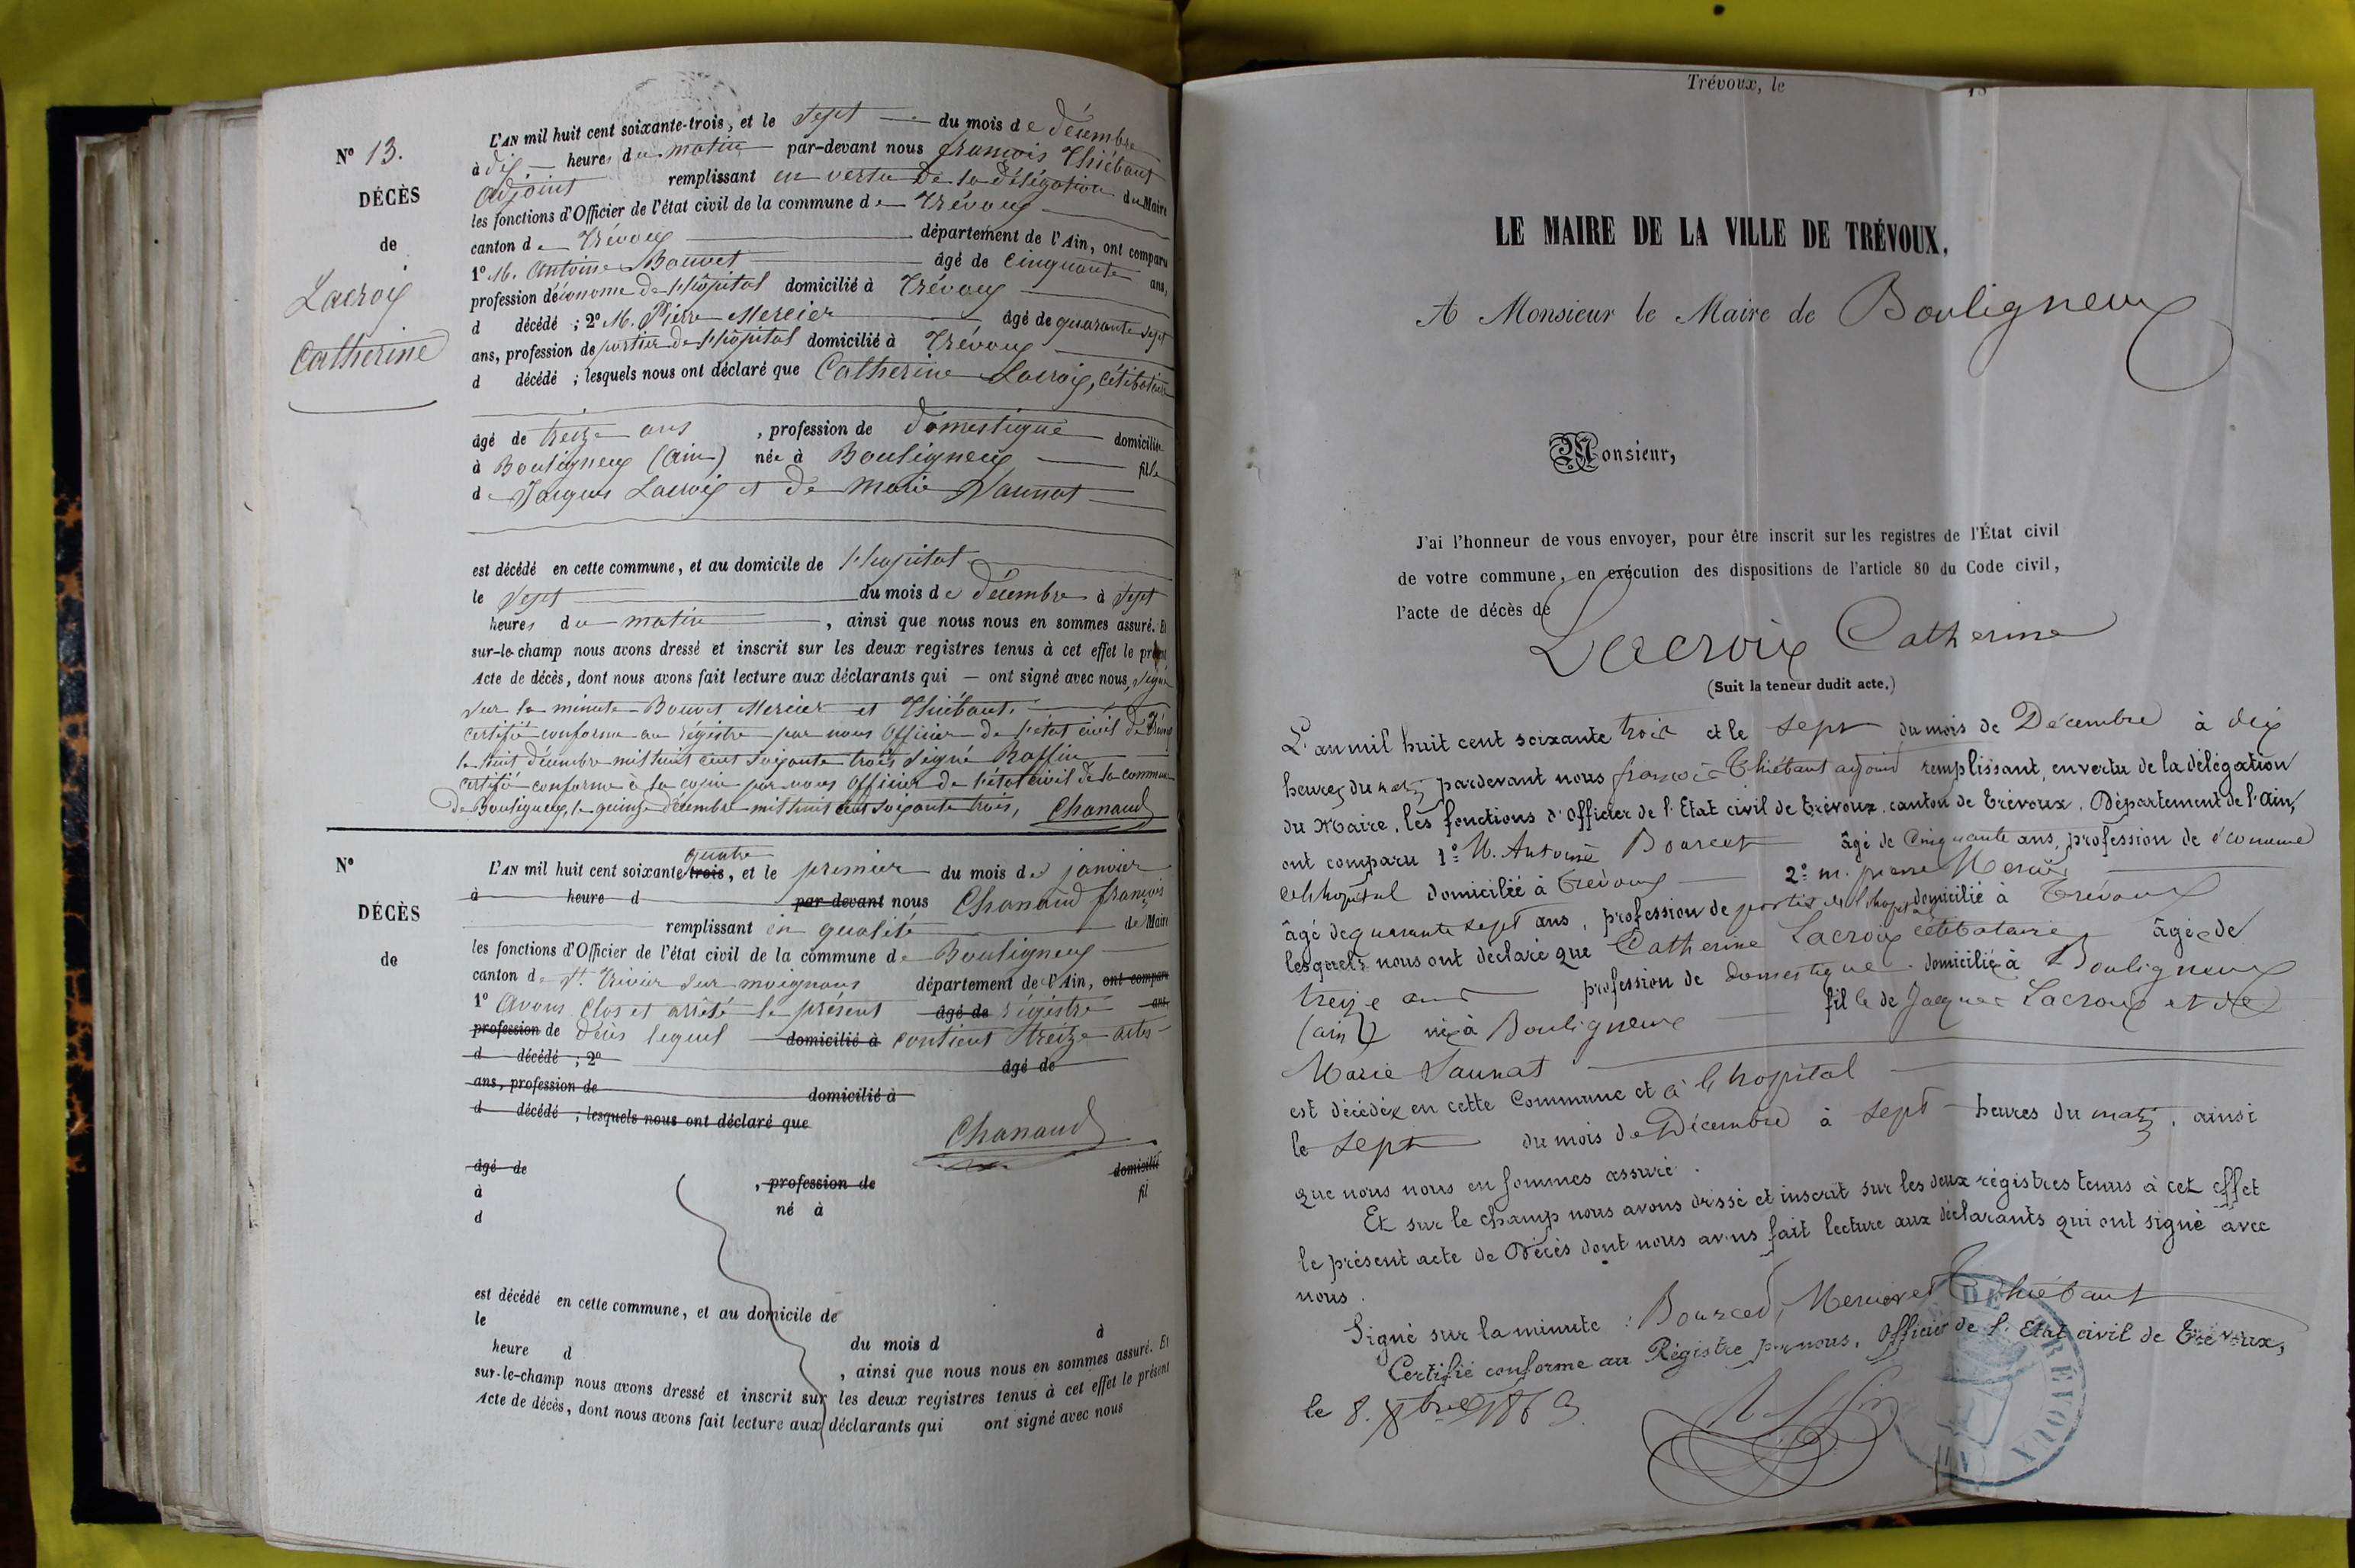 N° 13.
DÉCÈS
de
Lacroix
Catherine
L'AN mil huit cent soixante-trois, et le sept du mois de décembre
à dix heures du matin par-devant nous françois Thiébaut
adjoint remplissant en vertu de la délégation du Maire
les fonctions d'Officier de l'état civil de la commune de Trévoux
canton de Trévoux département de l'Ain, ont comparu
1° M. Antoine Bouvet âgé de cinquante ans,
profession d'économe de l'hôpital domicilié à Trévoux
d décédé ; 2° M. Pierre Mercier âgé de quarante sept
ans, profession de portier de l'hôpital domicilié à Trévoux
d décédé ; lesquels nous ont déclaré que Catherine Lacroix, célibataire
âgé de treize ans , profession de domestique domiciliée
à Bouligneux (ain) née à Bouligneux fille
de Jacques Lacroix et de marie Saunat
est décédé en cette commune, et au domicile de l'hopital
le sept du mois de décembre à sept
heures du matin , ainsi que nous nous en sommes assuré. Et
sur-le-champ nous avons dressé et inscrit sur les deux registres tenus à cet effet le présent
Acte de décès, dont nous avons fait lecture aux déclarants qui — ont signé avec nous, signé
sur la minute Bouvet Mercier et Thiébaut.
certifié conforme au régistre par nous Officier de l'état civil de Trévoux
le huit décembre mil huit cent soixante trois signé Raffin
certifié conforme à la copie par nous Officier de l'état civil de la commune
de Bouligneux, le quinze décembre mil huit cent soixante trois, Chanaud
N°
DÉCÈS
de
quatre
L'AN mil huit cent soixante-trois, et le premier du mois de janvier
à heure d par-devant nous Chanaud françois
remplissant en qualité de Maire
les fonctions d'Officier de l'état civil de la commune de Bouligneux
canton de St. Trivier sur moignans département de l'Ain, ont comparu
1° Avons clos et arrêté le présent âgé de régistre ans,
profession de décès lequel domicilié à contient treize actes
d décédé ; 2° âgé de
ans, profession de domicilié à
d décédé ; lesquels nous ont déclaré que
Chanaud
âgé de , profession de domicilié
à né à fil
d
est décédé en cette commune, et au domicile de
le du mois d à
heure d , ainsi que nous nous en sommes assuré. Et
sur-le-champ nous avons dressé et inscrit sur les deux registres tenus à cet effet le présent
Acte de décès, dont nous avons fait lecture aux déclarants qui ont signé avec nous
Trévoux, le 18
LE MAIRE DE LA VILLE DE TRÉVOUX,
A Monsieur le Maire de Bouligneux
Monsieur,
J'ai l'honneur de vous envoyer, pour être inscrit sur les registres de l'État civil
de votre commune, en exécution des dispositions de l'article 80 du Code civil,
l'acte de décès de
Lacroix Catherine
(Suit la teneur dudit acte.)
L'an mil huit cent soixante trois et le sept du mois de Décembre à dix
heures du matin pardevant nous françois Thiébaut adjoint remplissant, en vertu de la délégation
du Maire, les fonctions d'Officier de l'Etat civil de Trévoux, canton de Trévoux, Département de l'Ain,
ont comparu 1° M. Antoine Bouvet âgé de Cinquante ans, profession de économe
de l'hopital domicilié à Trévoux 2° m. pierre Mercier
âgé de quarante sept ans, profession de portier de l'hopital domicilié à Trévoux
lesquels nous ont déclaré que Catherine Lacroix célibataire âgée de
treize ans profession de domestique domiciliée à Bouligneux
(ain) née à Bouligneux fille de Jacques Lacroix et de
Marie Saunat
est décédée en cette Commune et à l'hopital
le sept du mois de Décembre à sept heures du matin, ainsi
que nous nous en sommes assuré.
Et sur le champ nous avons dressé et inscrit sur les deux régistres tenus à cet effet
le présent acte de Décès dont nous avons fait lecture aux déclarants qui ont signé avec
nous.
Signé sur la minute : Bouvet, Mercier et Thiébaut
Certifié conforme au Régistre par nous, Officier de l'Etat civil de Trévoux,
le 8. Xbre 1863
DE TRÉVOUX